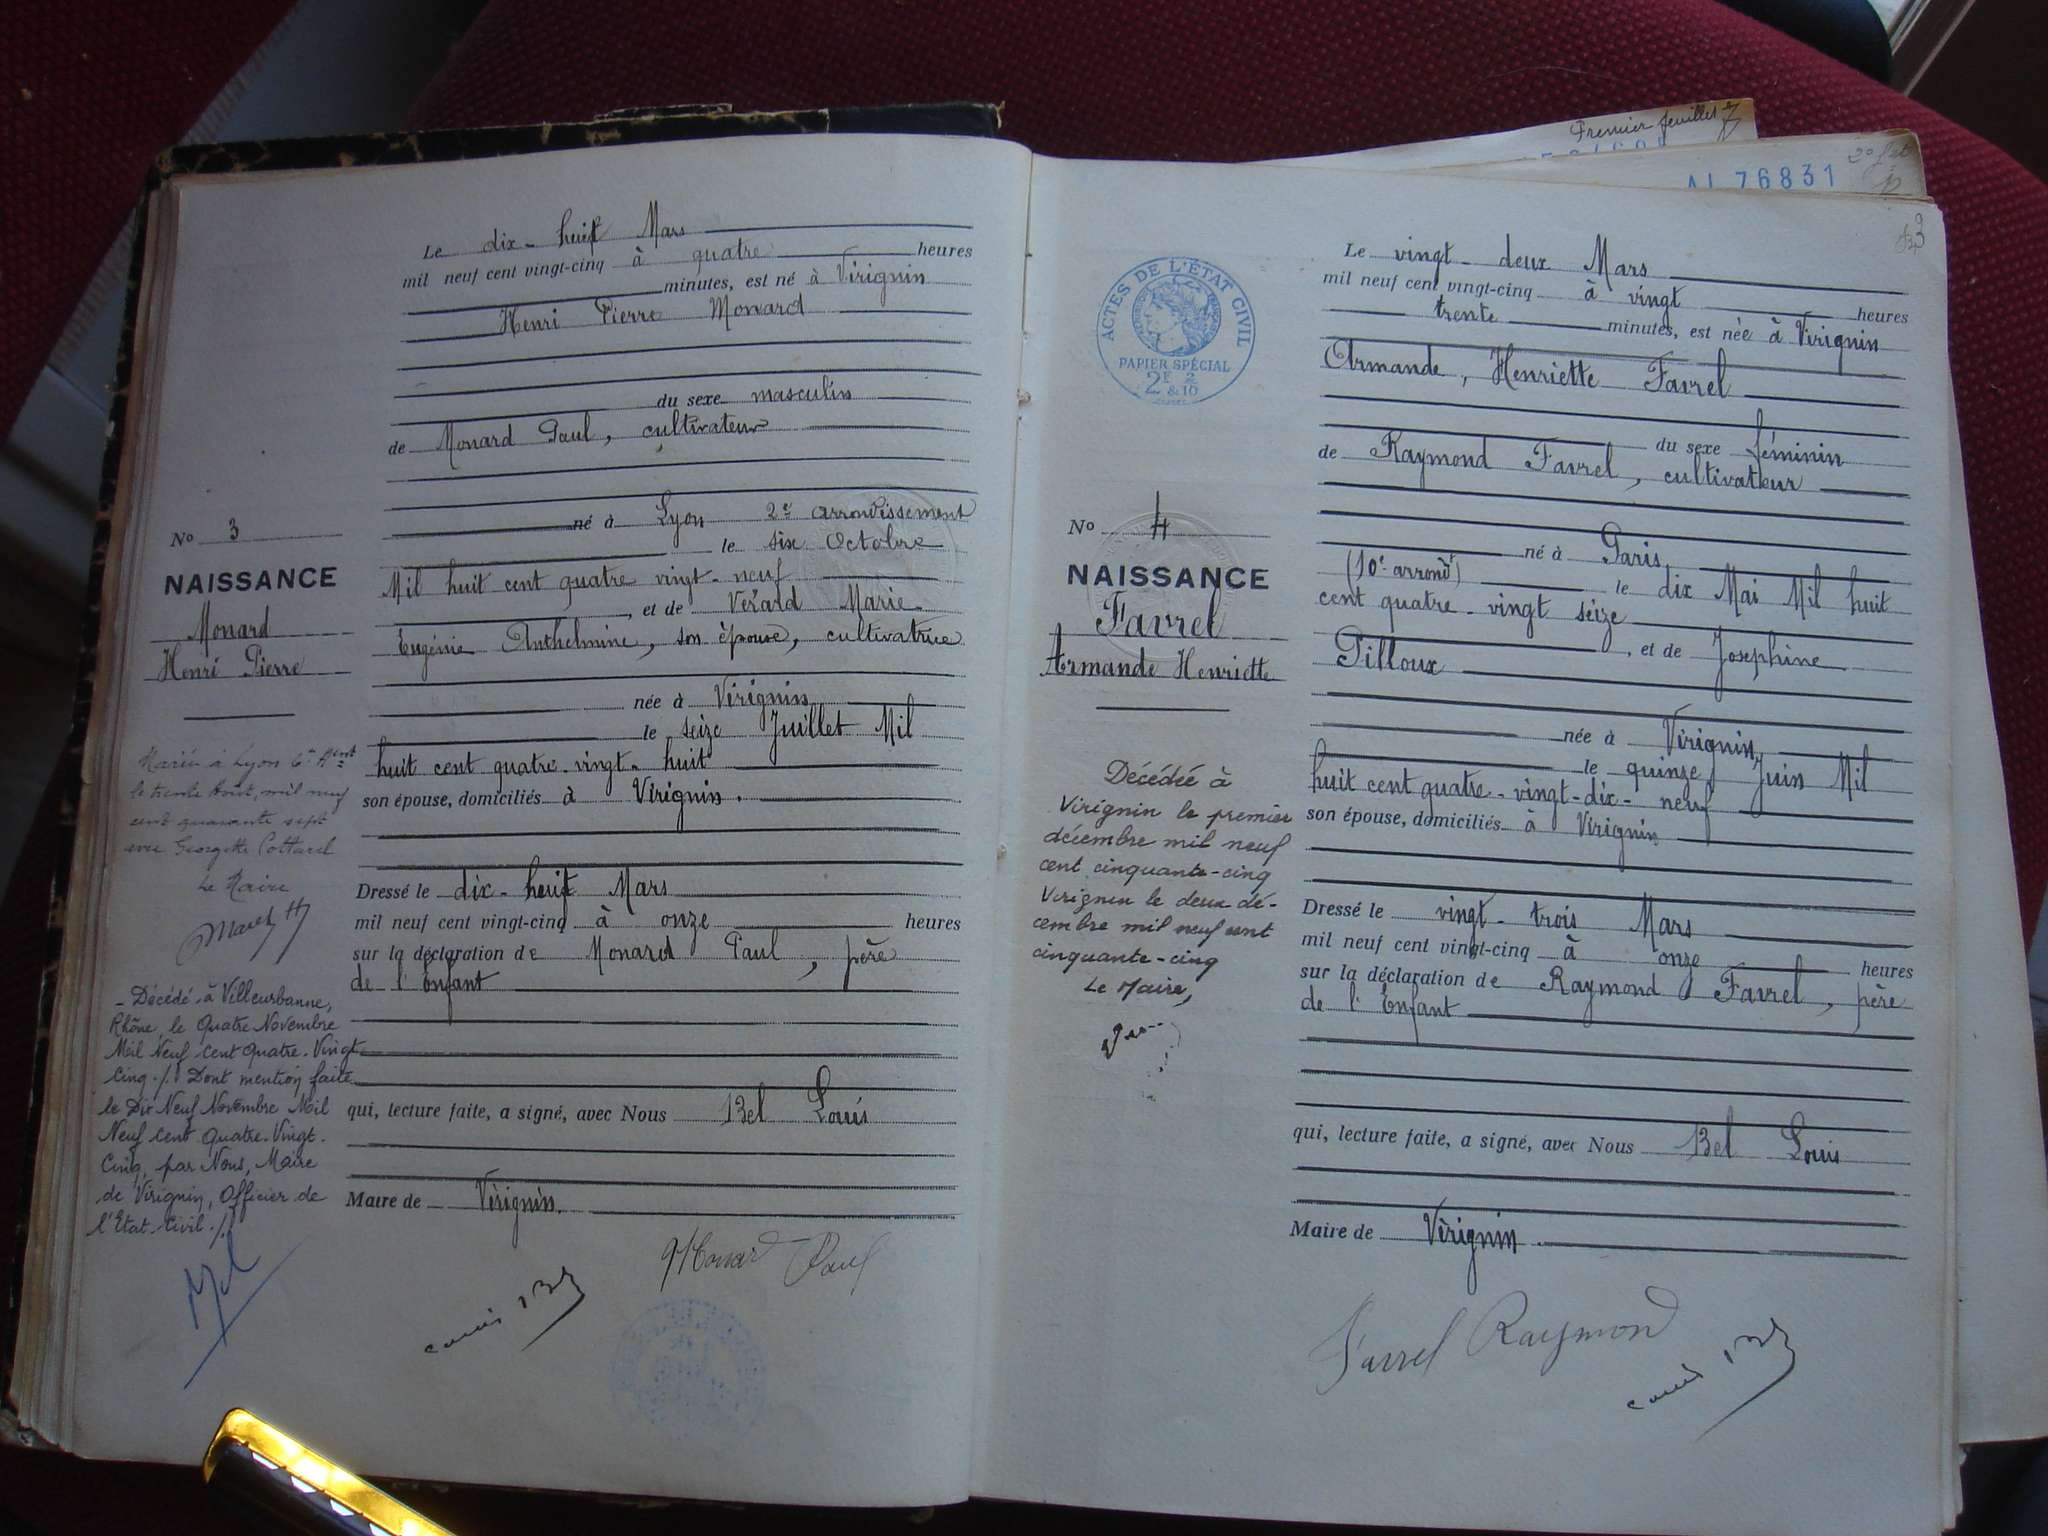 Premier feuillet
76831
3
Le dix-huit Mars
mil neuf cent vingt-cinq à quatre heures
minutes, est né à Virignin
Henri Pierre Monard
du sexe masculin
de Monard Paul, cultivateur
né à Lyon 2e arrondissement
le six Octobre
Mil huit cent quatre vingt-neuf
, et de Vérard Marie
Eugénie Anthelmine, son épouse, cultivatrice
née à Virignin
le seize Juillet Mil
huit cent quatre-vingt-huit
son épouse, domiciliés à Virignin.
Dressé le dix-huit Mars
mil neuf cent vingt-cinq à onze heures
sur la déclaration de Monard Paul, père
de l'enfant
qui, lecture faite, a signé, avec Nous Bel Louis
Maire de Virignin.
Monard Paul
No 3
NAISSANCE
Monard
Henri Pierre
Marié à Lyon 6e Arrt
le trente Août, mil neuf
cent quarante sept
avec Georgette Cottarel
Le Maire
- Décédé à Villeurbanne,
Rhône, le Quatre Novembre
Mil Neuf Cent Quatre-Vingt
Cinq./. Dont mention faite
le Dix Neuf Novembre Mil
Neuf Cent Quatre-Vingt-
Cinq, par Nous, Maire
de Virignin, Officier de
l'Etat-Civil./.
ACTES DE L'ÉTAT CIVIL
PAPIER SPÉCIAL
2F & 2/10
Le vingt-deux Mars
mil neuf cent vingt-cinq à vingt heures
trente minutes, est née à Virignin
Armande, Henriette Favrel
du sexe féminin
de Raymond Favrel, cultivateur
né à Paris,
(10e arrondt) le dix Mai Mil huit
cent quatre-vingt seize
, et de Josephine
Pilloux
née à Virignin,
le quinze Juin Mil
huit cent quatre-vingt-dix-neuf
son épouse, domiciliés à Virignin
Dressé le vingt-trois Mars
mil neuf cent vingt-cinq à onze heures
sur la déclaration de Raymond Favrel, père
de l'Enfant
qui, lecture faite, a signé, avec Nous Bel Louis
Maire de Virignin.
Favrel Raymond
No 4
NAISSANCE
Favrel
Armande Henriette
Décédée à
Virignin le premier
décembre mil neuf
cent cinquante-cinq
Virignin le deux dé-
cembre mil neuf cent
cinquante-cinq
Le Maire,